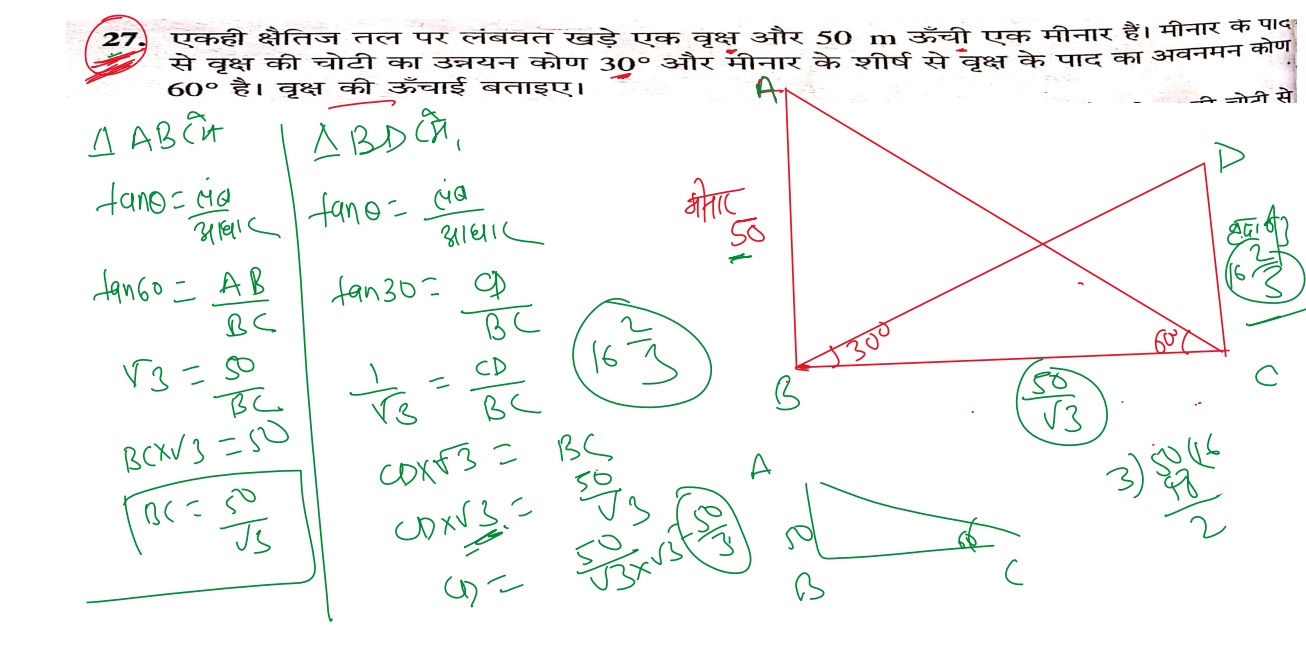 27. एकही क्षैतिज तल पर लंबवत खड़े एक वृक्ष और 50 m ऊँची एक मीनार हैं। मीनार के पाद
से वृक्ष की चोटी का उन्नयन कोण 30° और मीनार के शीर्ष से वृक्ष के पाद का अवनमन कोण
60° है। वृक्ष की ऊँचाई बताइए।
की चोटी से
Δ ABC में
tanθ = लंब / आधार
tan60 = AB / BC
√3 = 50 / BC
BC×√3 = 50
BC = 50 / √3
Δ BDC में,
tanθ = लंब / आधार
tan30 = CD / BC
1 / √3 = CD / BC
CD×√3 = BC
CD×√3 = 50 / √3
CD = 50 / √3×√3 = 50 / 3
16 2/3
A
मीनार
50
B
30°
60°
D
16 2/3
C
50 / √3
A
50
B
60
C
3) 50 (16
48
2